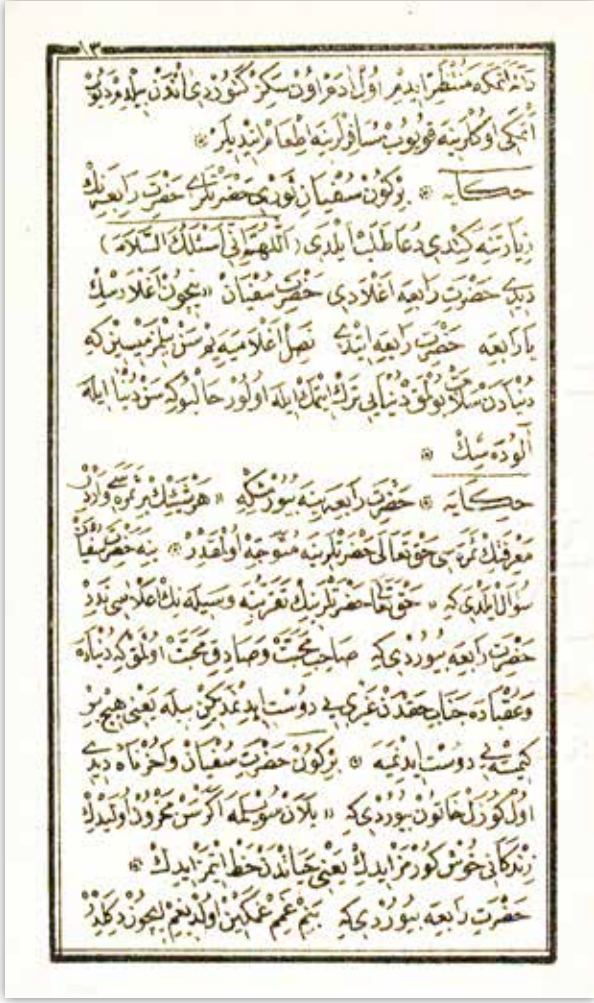 ١٣
دانه اتمكه منتظر ايدم اول آدم اون سكز كتوردى اندن بيلدم ديوب
اتمكى اوكلرينه قويوب مسافرلرينه اطعام ايتديلر *
حكايه * بركون سفيان ثورى حضرتلرى حضرت رابعه نك
زيارتنه كلدى دعا طلب ايلدى (اللهم انى اسئلك السلامة)
ديدى حضرت رابعه اغلادى حضرت سفيان « نيچون اغلارسك
يا رابعه حضرت رابعه ايتدى نصل اغلاميه يم سن بيلمزميسين كه
دنيادن سلامت بولمق دنيايى ترك ايتمك ايله اولور حالبوكه سن دنيا ايله
آلوده سك *
حكايه * حضرت رابعه ينه بيورمشكه « هر شيئك بر ثمره سى واردر
معرفتك ثمره سى حق تعالى حضرتلرينه متوجه اولمقدر * ينه حضرت سفيان
سؤال ايلدى كه « حق تعالى حضرتلرينك تقربنه وسيله نك اعلاسى نه در
حضرت رابعه بيوردى كه صاحب محبت وصادق محبت اولمق كه دنياده
وعقباده جناب حقدن غيرى يى دوست ايدنمكن بيله يعنى هيچ بر
كيمسه يى دوست ايدنميه * بركون حضرت سفيان واحزناه ديدى
اول كوزل خاتون بيوردى كه « يلان سويلمه اكر سن محزون اوليدك
زندكانى خوش كورمز ايدك يعنى حياتدن حظ ايتمز ايدك *
حضرت رابعه بيوردى كه بنم غمم غمكين اولديغم ايچون دكلدر